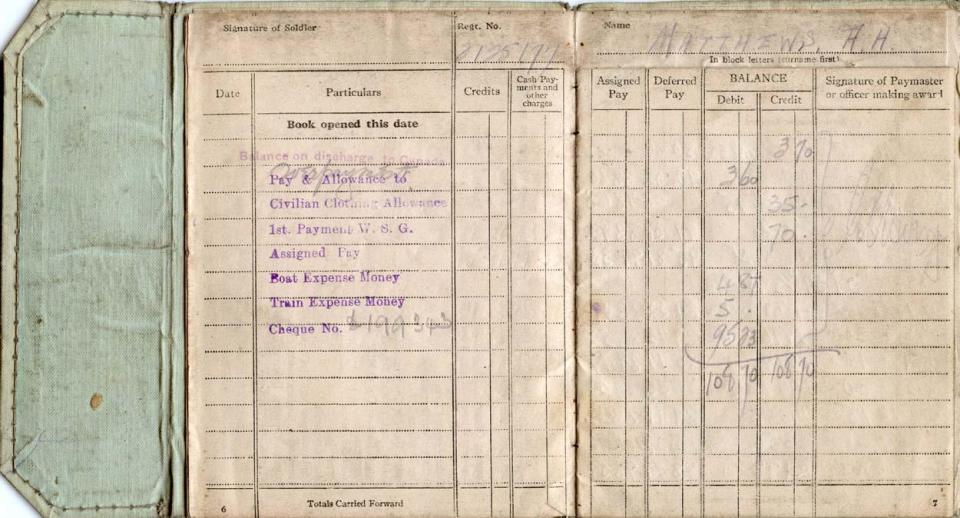 Signature of Soldier
Regt. No.
Date
Particulars
Credits
Cash Pay-
ments and
other
charges
Book opened this date
Balance on discharge to Canada
Pay & Allowance to
Civilian Clothing Allowance
1st. Payment W. S. G.
Assigned Pay
Boat Expense Money
Train Expense Money
Cheque No.
Totals Carried Forward
6
Name MATTHEWS, H.H.
In block letters (surname first)
Assigned
Pay
Deferred
Pay
BALANCE
Debit
Credit
Signature of Paymaster
or officer making award
3 70
3 60
35 -
70 -
4 87
5 -
95 23
108 70 108 70
7